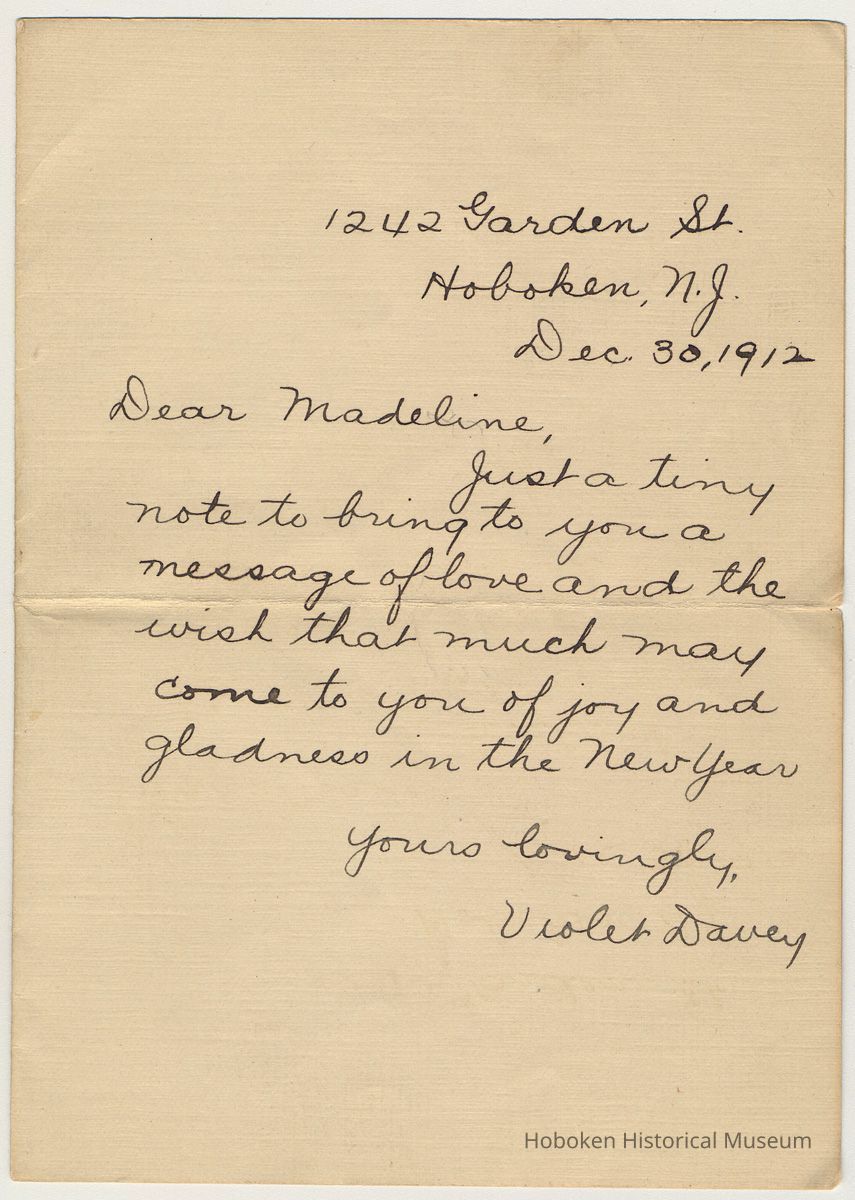 1242 Garden St.
Hoboken, N.J.
Dec. 30, 1912
Dear Madeline,
Just a tiny
note to bring to you a
message of love and the
wish that much may
come to you of joy and
gladness in the New Year
Yours lovingly,
Violet Davey
Hoboken Historical Museum